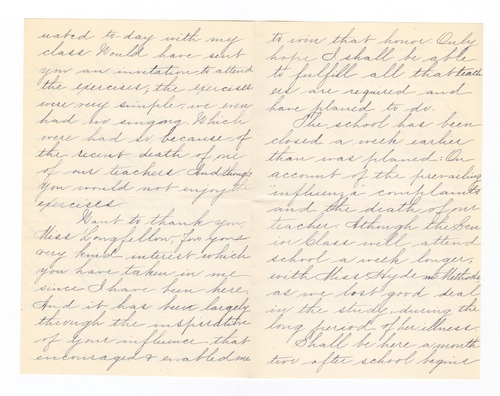 uated to-day with my
class. Would have sent
you an invitation to attend
the exercises, the exercises
were very simple, we even
had no singing. Which
were had so because of
the recent death of one
of our teachers. And though
you would not enjoy the
exercises.
Want to thank you
Miss Longfellow, for your
very kind interest which
you have taken in me
since I have been here.
And it has been largely
through the
of your influence, that
encouraged & enabled me
to win that honor. Only
hope I shall be able
to fulfill all that teach
ers are required and
have planed to do.
The school has been
closed a week earlier
than was planed: On
account of the prevailing
"influenza" complaints
and the death of our
teacher. Although the Sen
ior Class will attend
school a week longer,
with Miss Hyde in Methods,
as we lost good deal
in the study during the
long period of her illness.
Shall be here a month
two after school begins